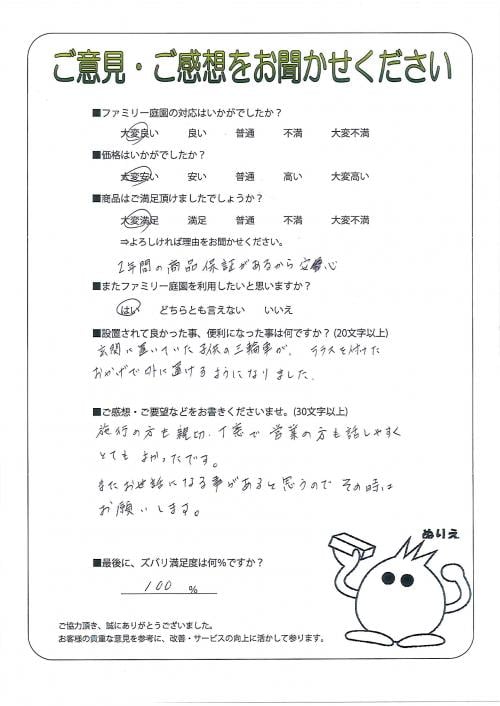 ご意見・ご感想をお聞かせください
■ファミリー庭園の対応はいかがでしたか？
大変良い 良い 普通 不満 大変不満
■価格はいかがでしたか？
大変安い 安い 普通 高い 大変高い
■商品はご満足頂けましたでしょうか？
大変満足 満足 普通 不満 大変不満
⇒よろしければ理由をお聞かせください。
2年間の商品保証があるから安心
■またファミリー庭園を利用したいと思いますか？
はい どちらとも言えない いいえ
■設置されて良かった事、便利になった事は何ですか？（20文字以上）
玄関に置いていた子供の三輪車が、テラスを付けた
おかげで外に置けるようになりました。
■ご感想・ご要望などをお書きくださいませ。（30文字以上）
施行の方も親切、丁寧で営業の方も話しやすく
とてもよかったです。
またお世話になる事があると思うのでその時は
お願いします。
ぬりえ
■最後に、ズバリ満足度は何％ですか？
100 %
ご協力頂き、誠にありがとうございました。
お客様の貴重な意見を参考に、改善・サービスの向上に活かして参ります。